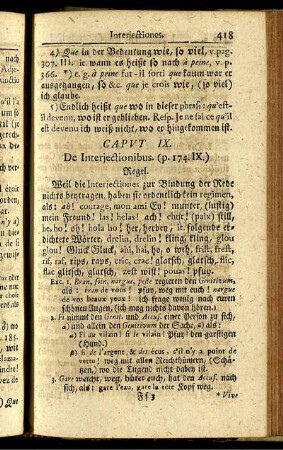 Interjectiones. 418
4) Que in der Bedeutung wie, so viel, v. pag.
307. III. it. wann es heißt so nach à peine, v. p.
366. *) e. g. à peine fut-il sorti que kaum war er
ausgegangen, so &c. que je crois wie, (so
viel) glaube.
5) Endlich heißt que wo in dieser phrasi: qu'est-
il devenu, wo ist er geblieben. Resp. Je ne sai ce qu'il
est devenu ich weiß nicht, wo er hingekommen ist.
CAPUT IX.
De Interjectionibus. (p. 174. IX.)
Regel.
Weil die Interjectiones zur Bindung der Rede
nichts beytragen, haben sie ordentlich kein regimen,
als: ah! courage, mon ami Ey! munter, (lustig)
mein Freund! las! helas! ach! chut! (paix) still,
he, ho! oh! hola ho! her, herbey, it. folgende er-
dichtete Wörter, drelin, drelin! kling, kling, glou
glou! Gluck Gluck, ahi, hai, ho, o weh, frisk, fresk,
zif, zaf, rips, raps, cric, crac! glatsch, glatsch, flic,
flac glitsch, glatsch, zest wist! pouas! pfuy.
Exc. 1. Bran, foin, nargue, peste regieren den Genitivum,
als: bran de vous! pfuy, weg mit euch! nargue
de vos beaux yeux! ich frage wenig nach euren
schönen Augen, (ich mag nichts davon hören.)
2. Fi nimmt den Genit. und Accus. einer Person zu sich,
a) und allein den Genitivum der Sache, b) als:
a) Fi au vilain! fi le vilain! Pfuy den garstigen
(Hund.)
b) fi de l'argent, & des écus, s'il n'y a point de
vertu! weg mit allen Reichthümern, (Schä-
tzen,) wo die Tugend nicht dabey ist.
3. Gare weicht, weg, hütet euch, hat den Accus. nach
sich, als: gare l'eau, gare la tête Kopf weg.
Ff 3 * Vive